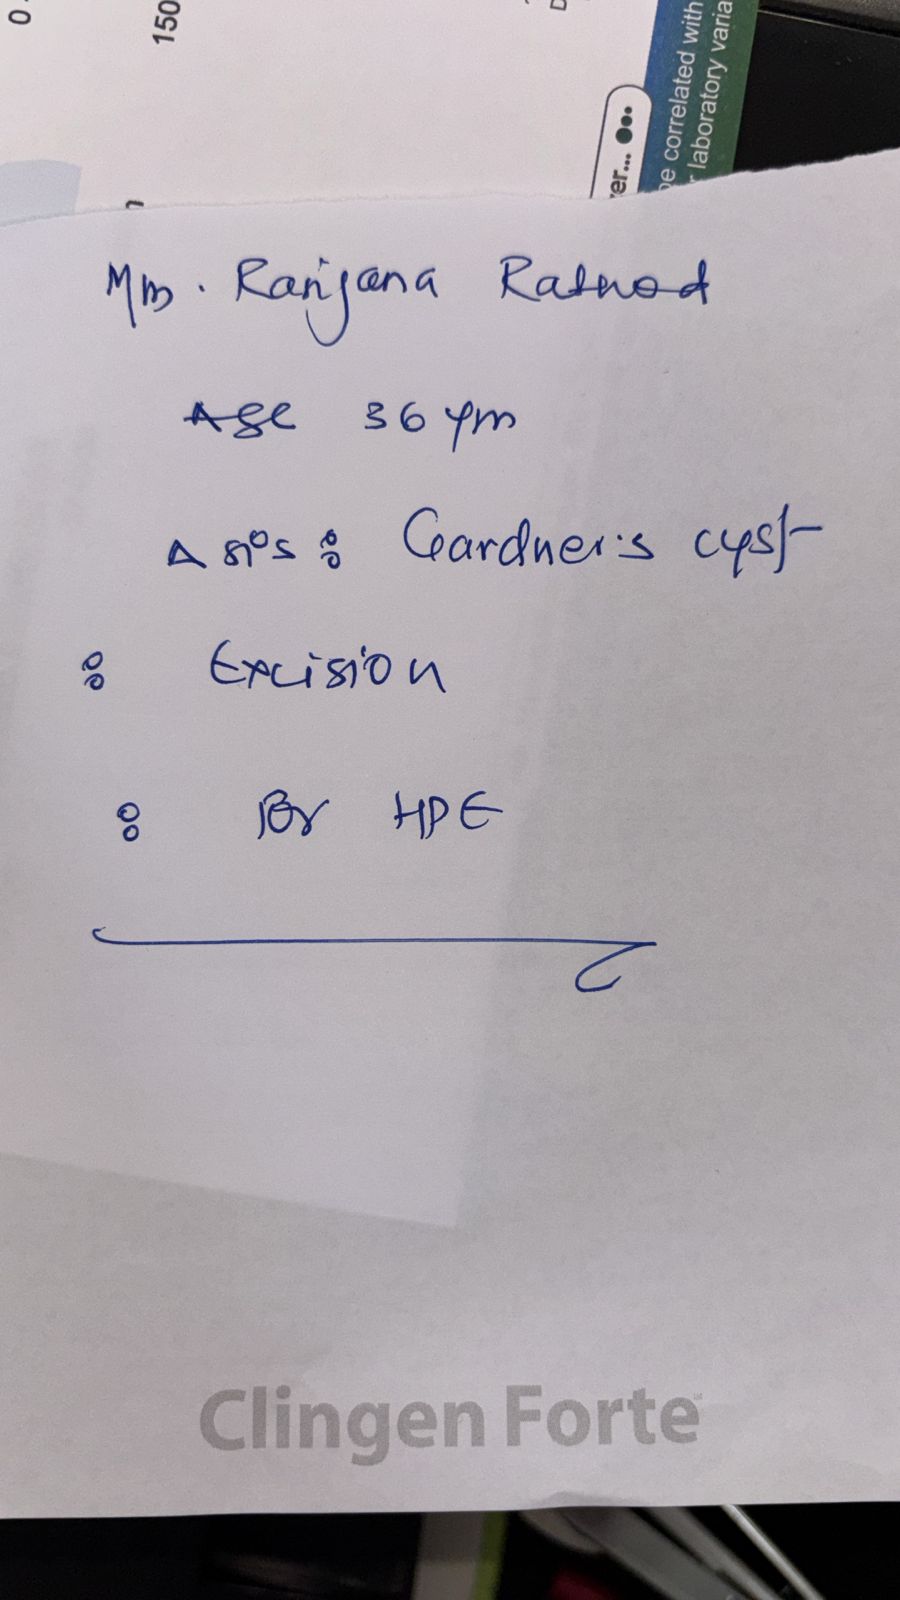 0
150
er...
be correlated with
laboratory varia
Mrs. Ranjana Rathod
Age 36 yrs
Δ sis : Gardner's cyst
: Excision
: for HPE
Clingen Forte